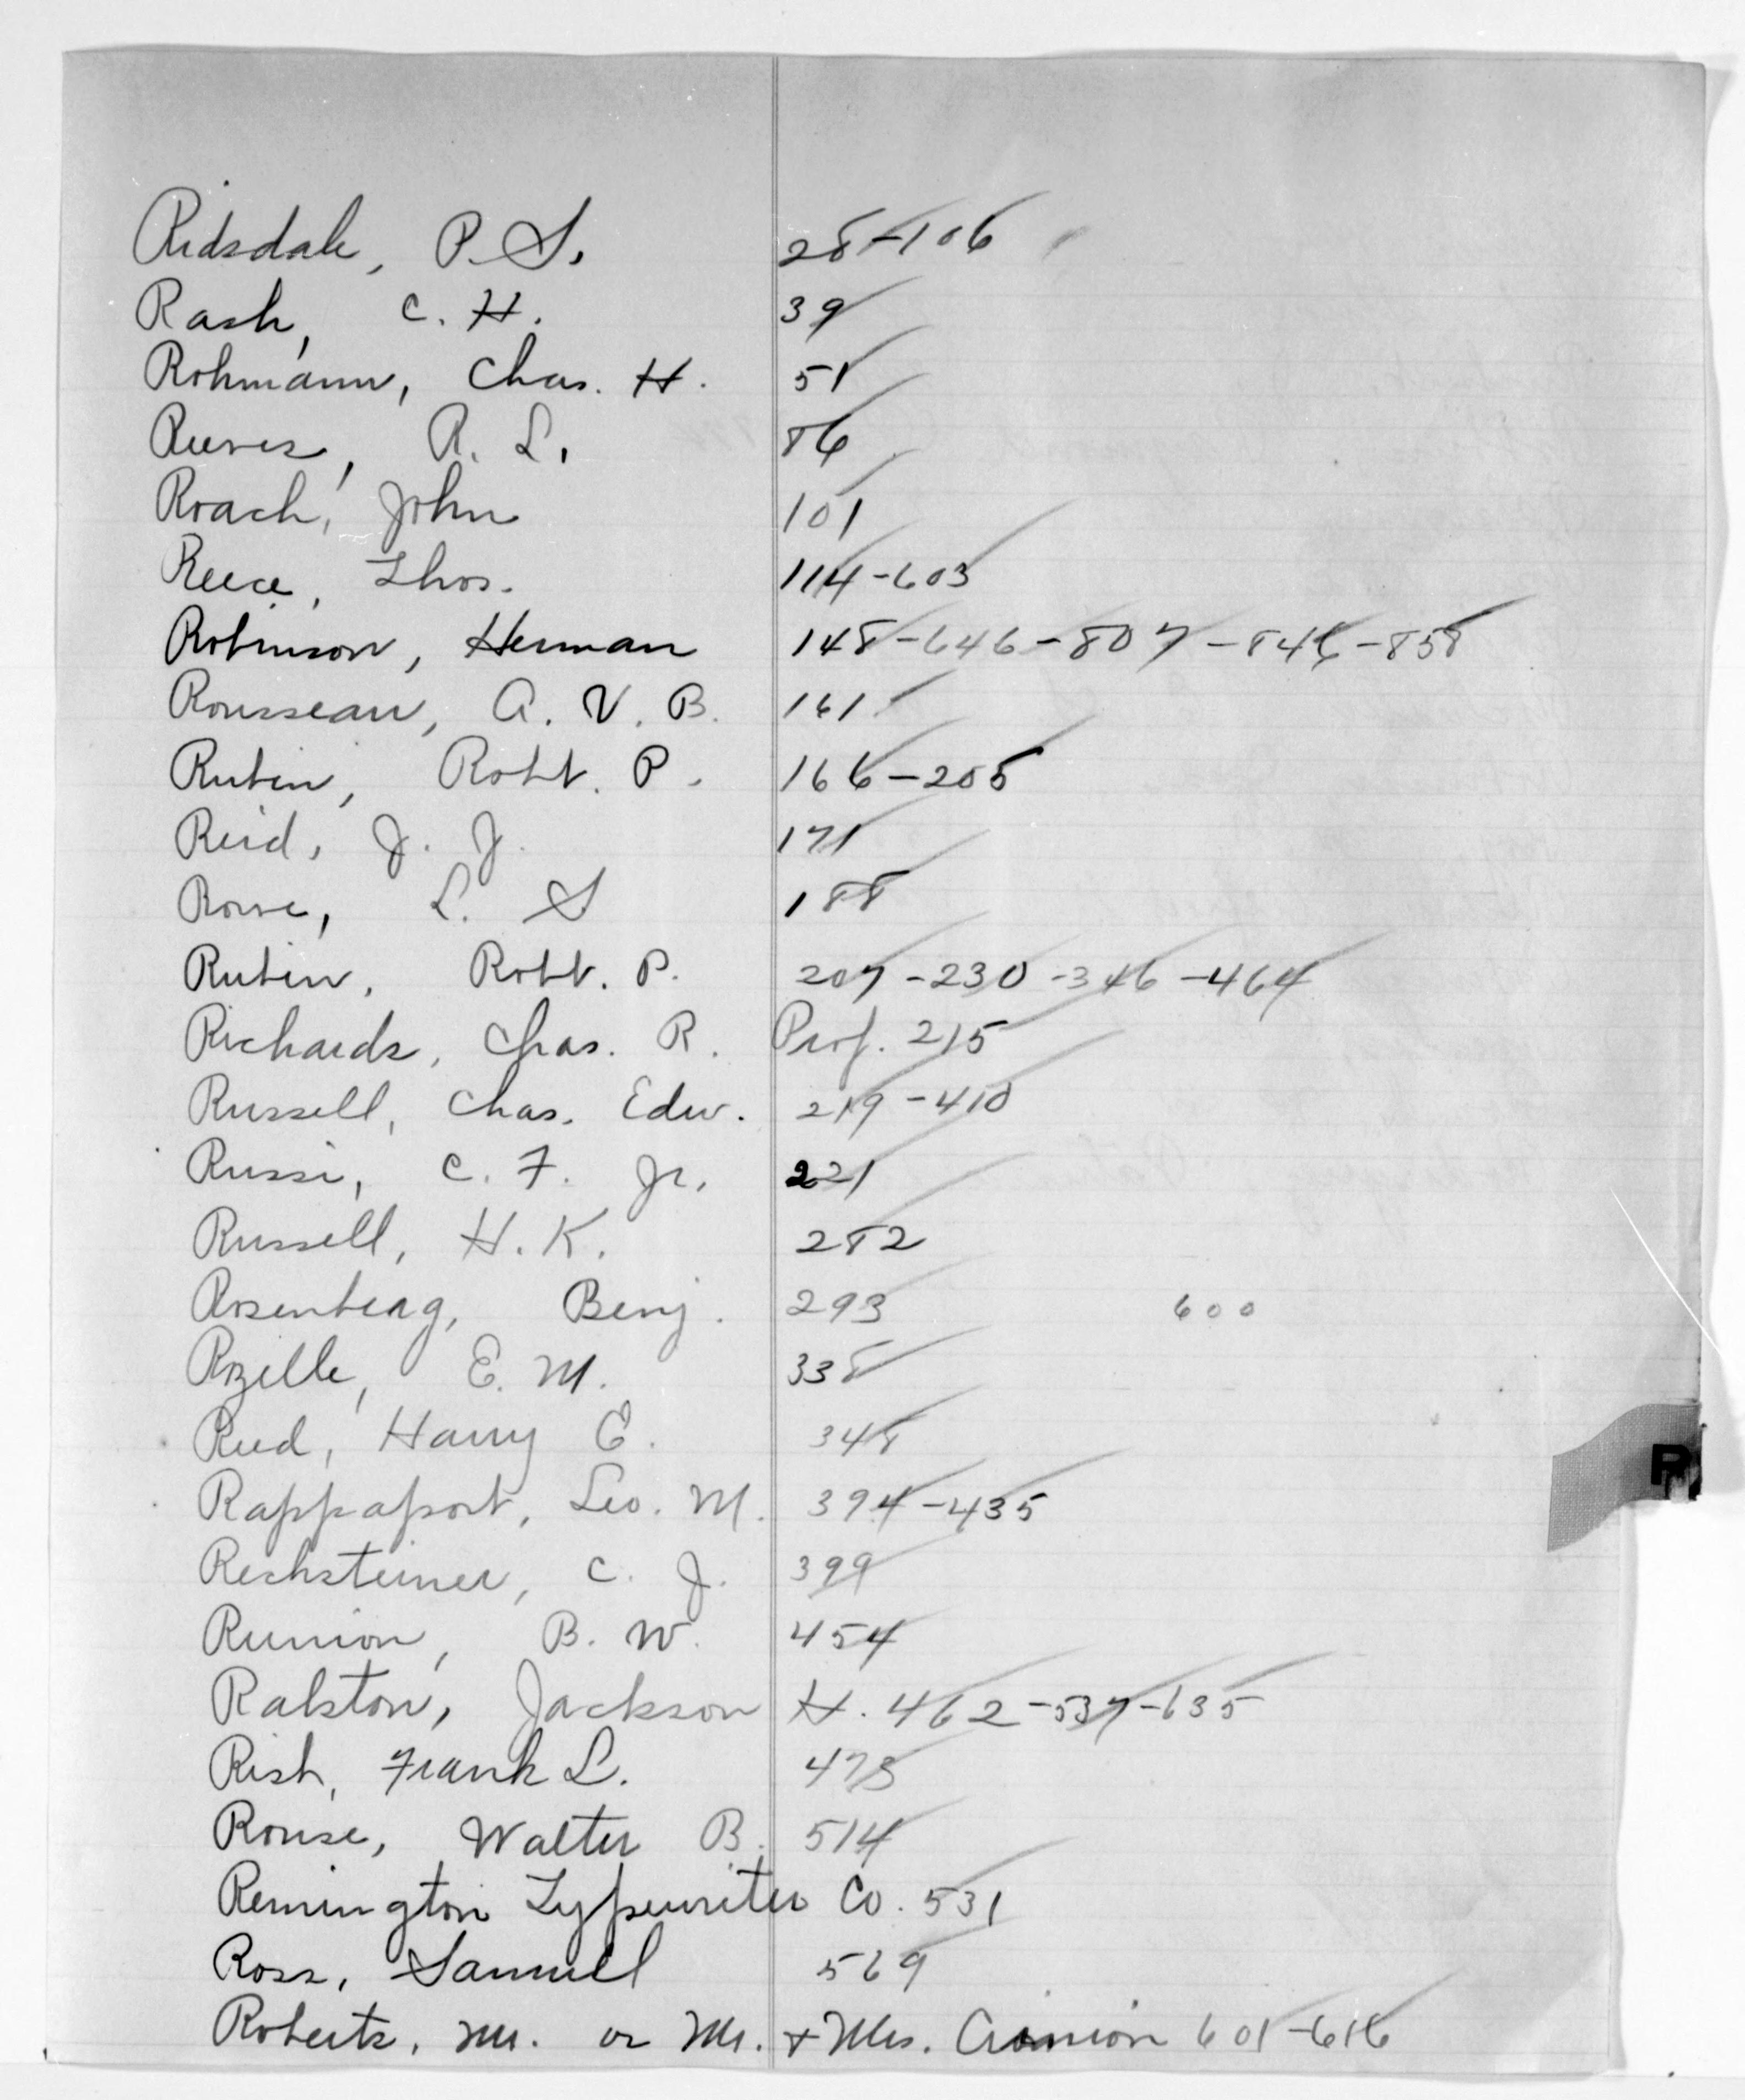 Ridsdale, P. S. 28-106
Rash, C. H. 39
Rohmann, Chas. H. 51
Reeves, R. L. 86
Roach, John 101
Reece, Thos. 114-603
Robinson, Herman 148-646-807-846-858
Rousseau, A. V. B. 161
Rubin, Robt. P. 166-205
Reid, J. J. 171
Rowe, L. S 188
Rubin, Robt. P. 207-230-346-464
Richards, Chas. R. Prof. 215
Russell, Chas. Edw. 219-410
Russi, C. F. Jr. 221
Russell, H. K. 282
Rosenberg, Benj. 293 600
Rozelle, E. M. 338
Reed, Harry E. 348
Rappaport, Leo. M. 394-435
Rechsteiner, C. J. 399
Reunion, B. W. 454
Ralston, Jackson H. 462-537-635
Rist, Frank L. 473
Rouse, Walter B. 514
Remington Typewriter Co. 531
Ross, Samuel 569
Roberts, Mr. or Mr. + Mrs. 601-616
R